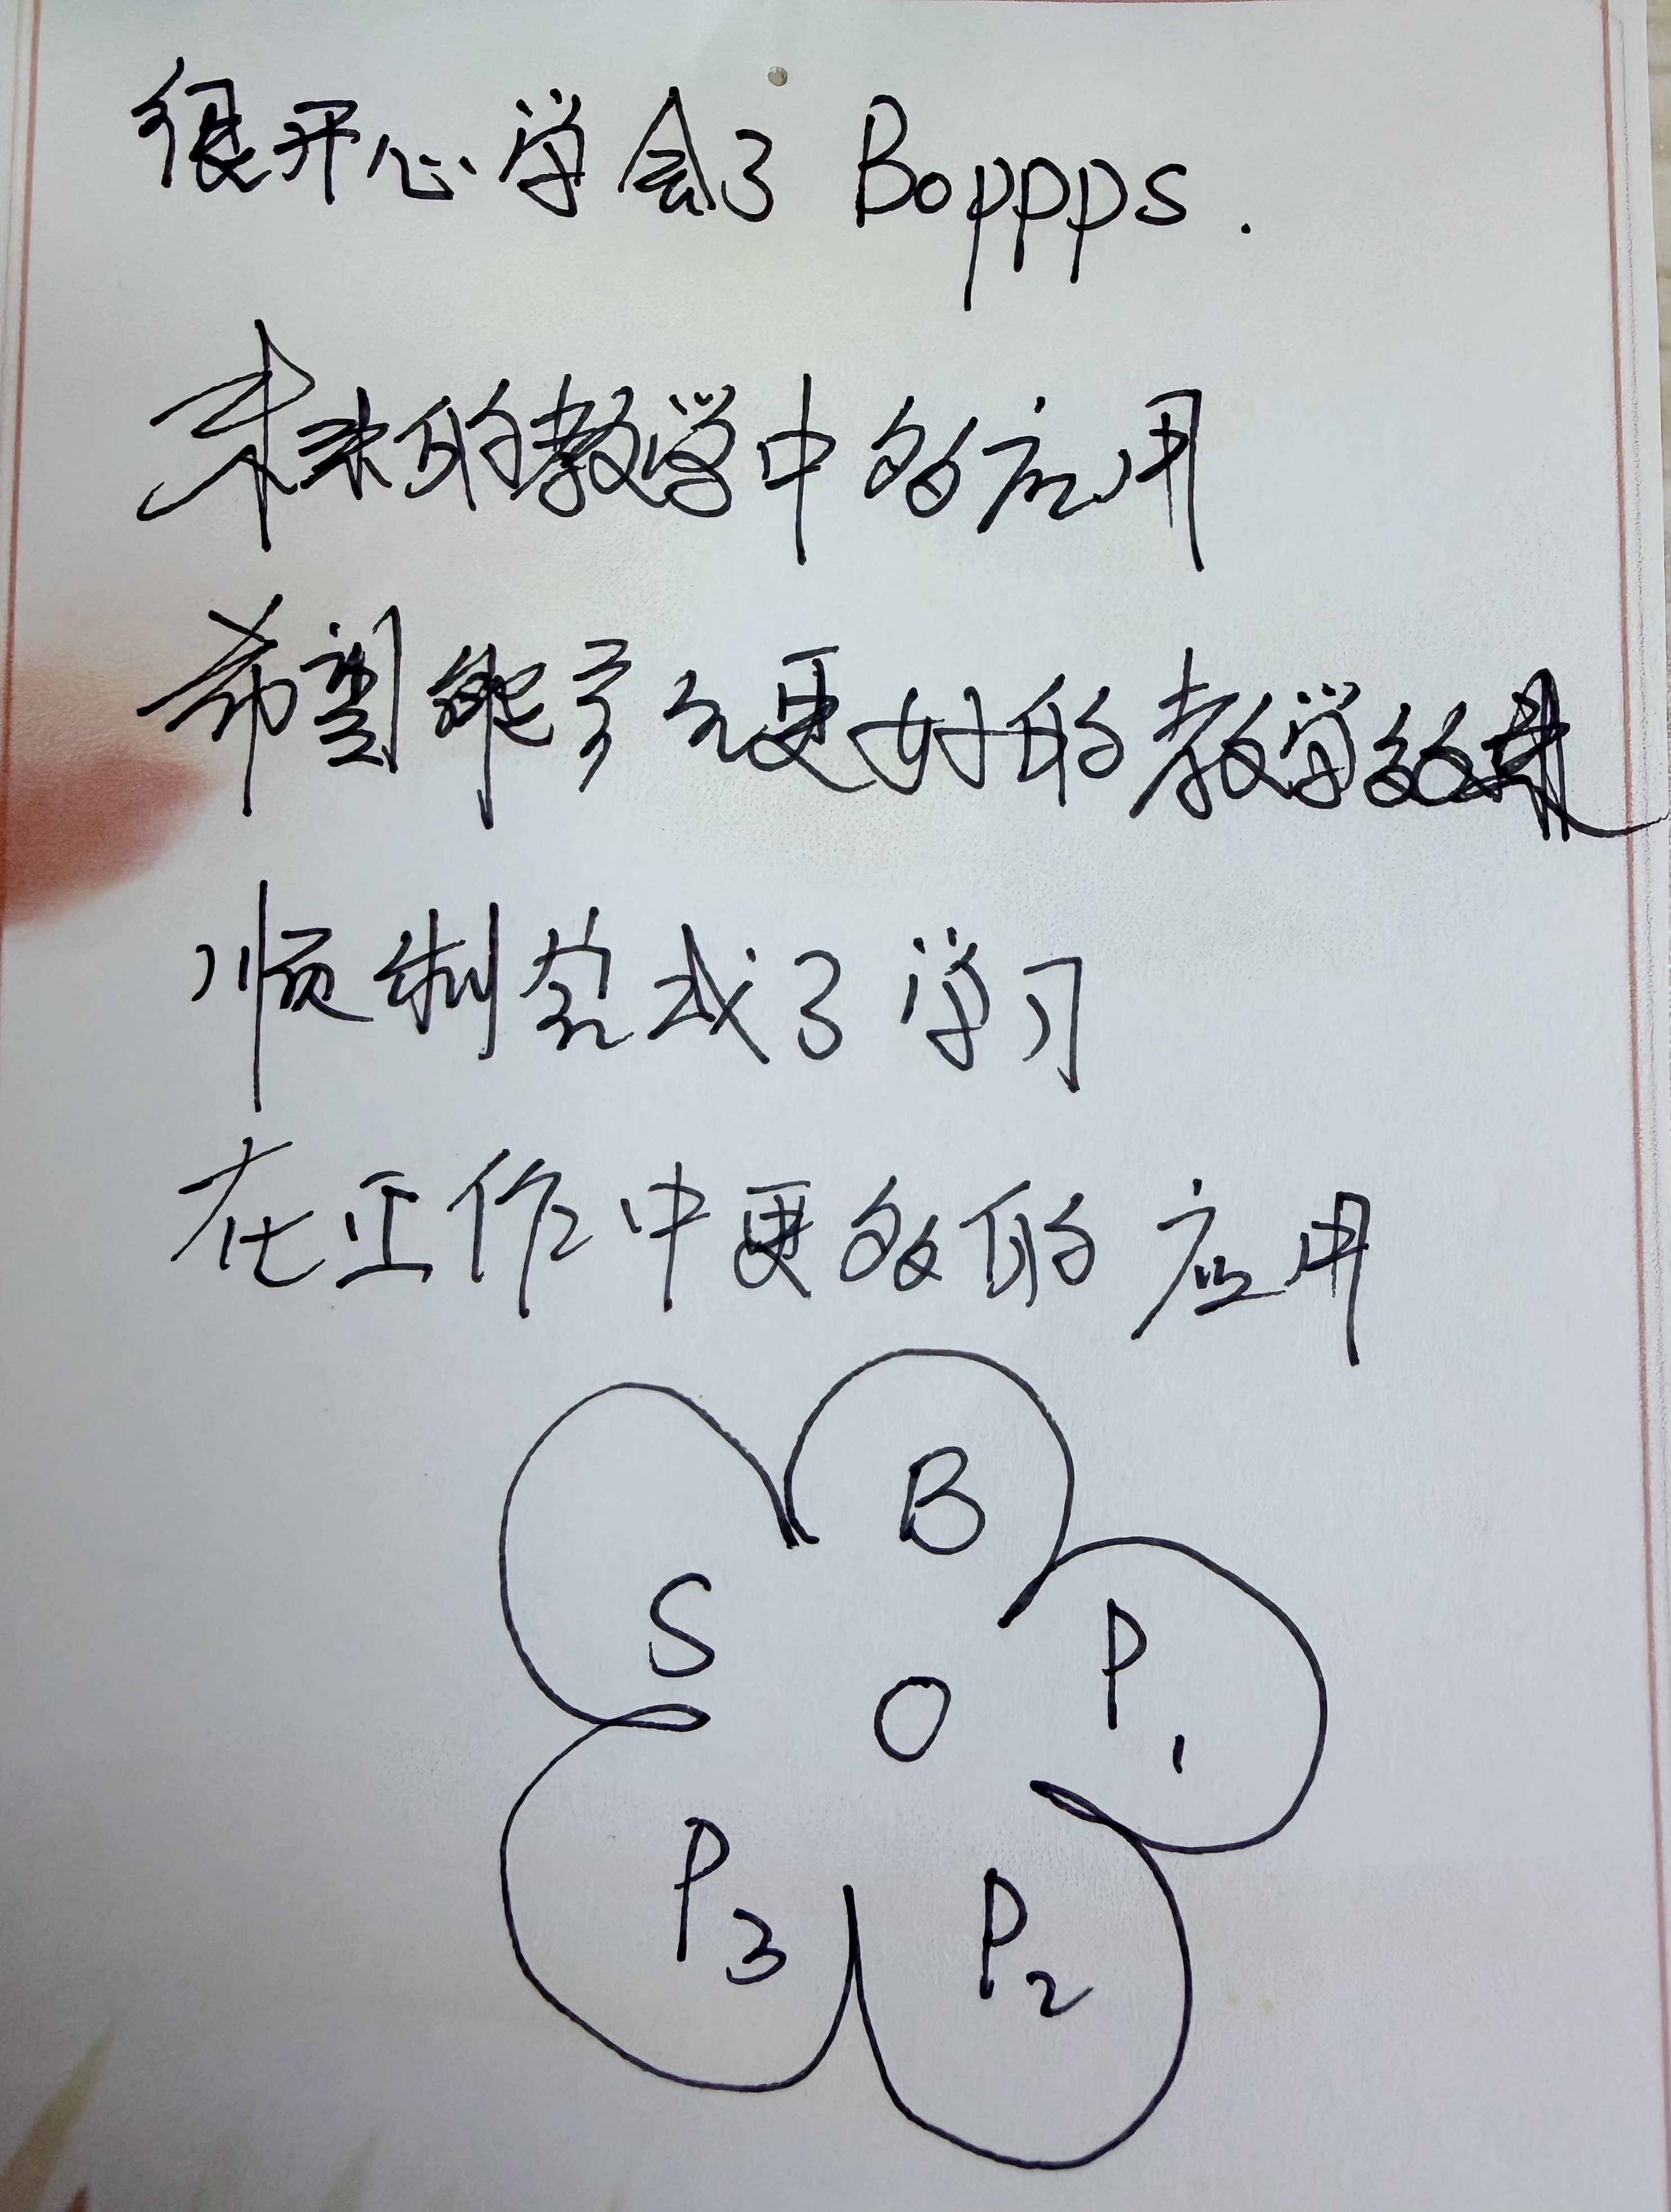 很开心学会了 Boppps.
未来的教学中的应用
希望能 更好的教学效果
顺利完成了学习
在工作中更 的应用
B
S
P1
O
P3
P2